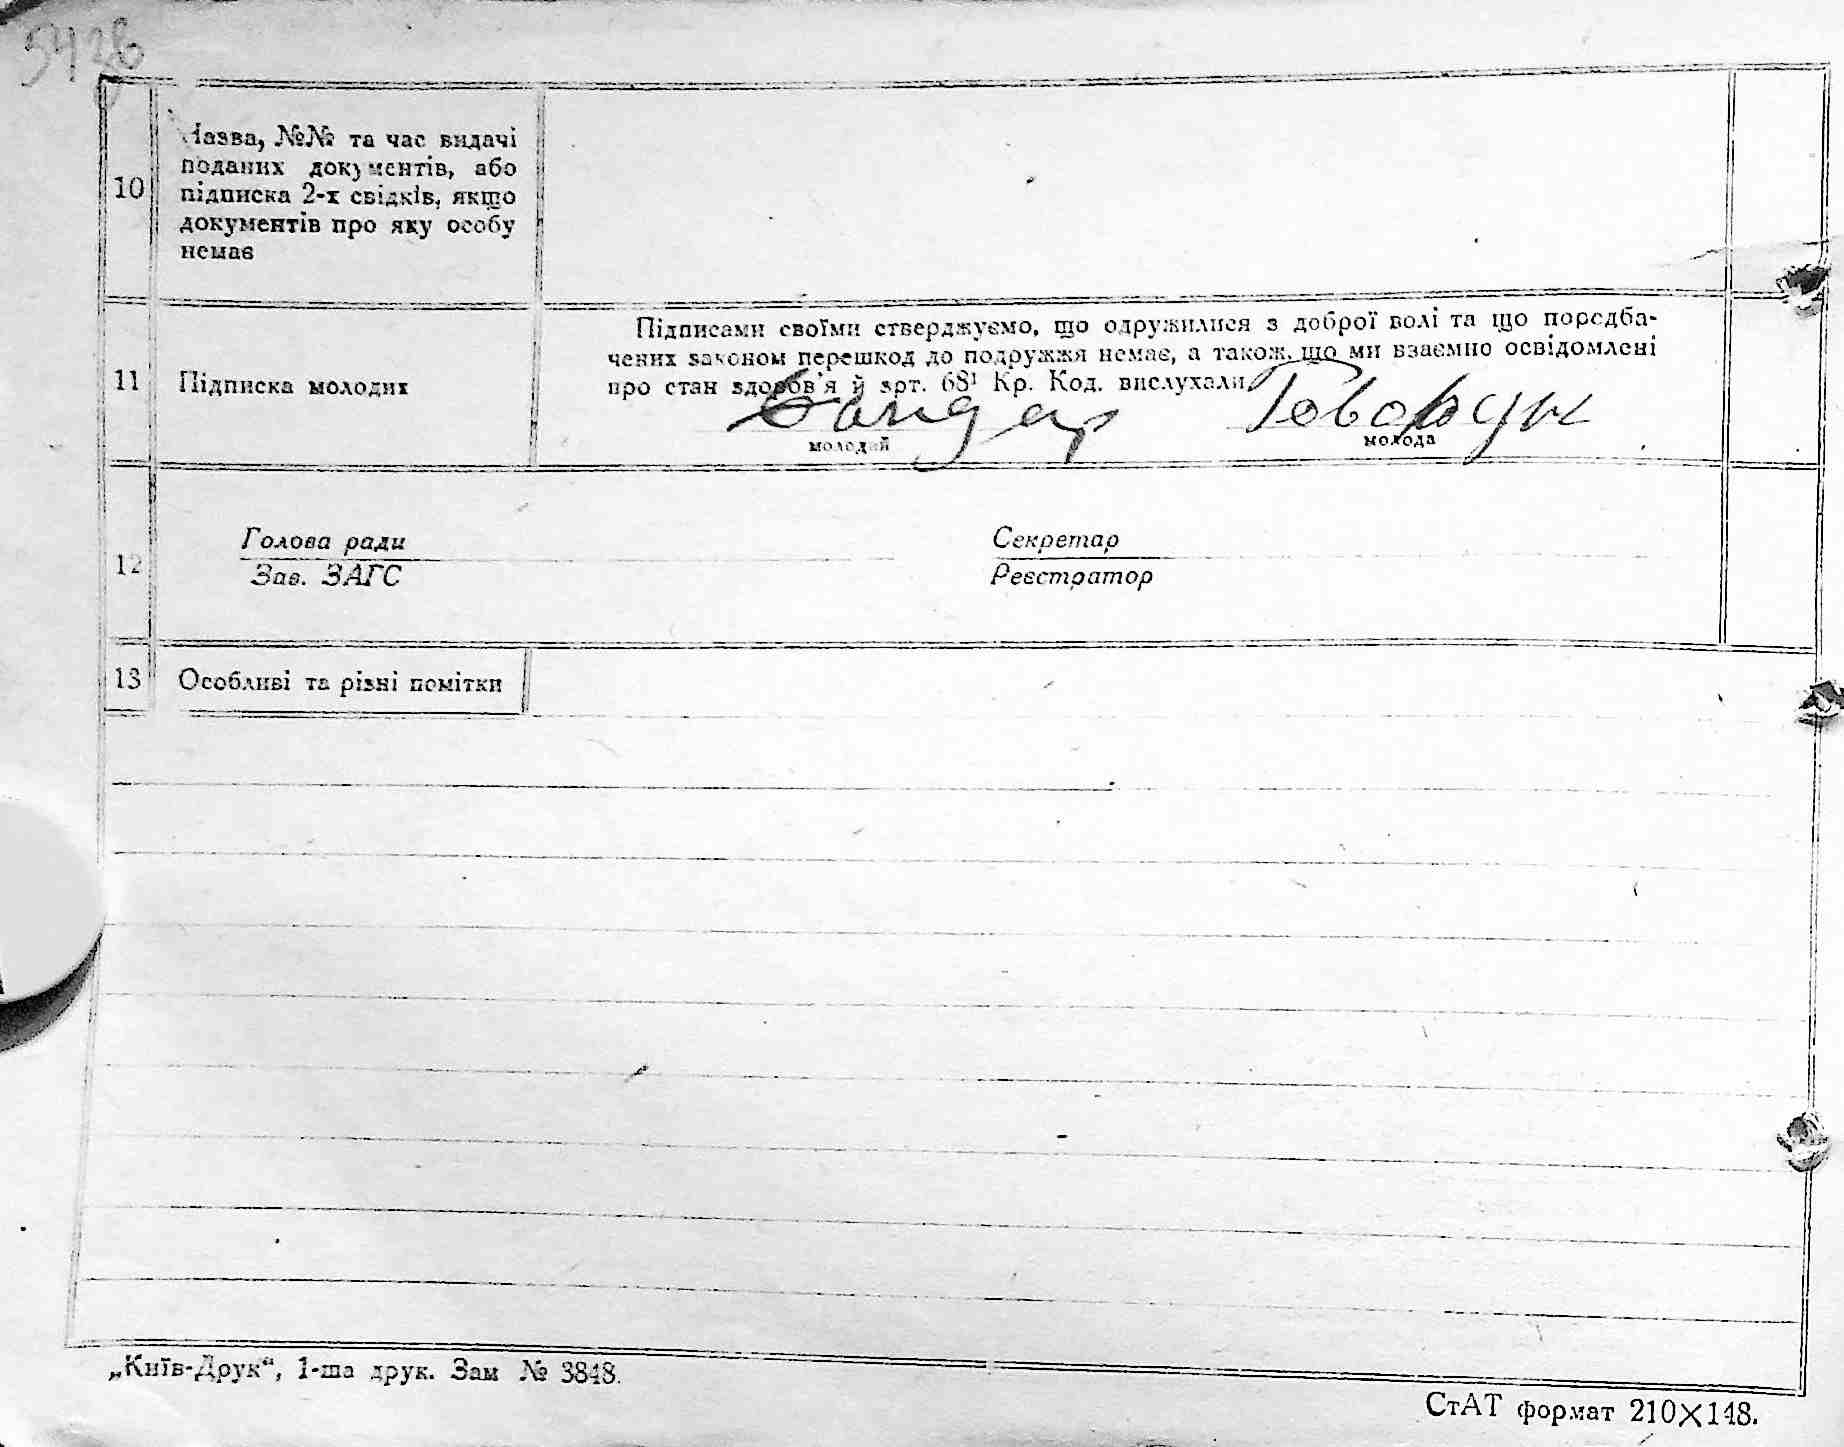 10
Назва, №№ та час видачі
поданих документів, або
підписка 2-х свідків, якщо
документів про яку особу
немає
11
Підписка молодих
Підписами своїми стверджуємо, що одружилися з доброї волі та що передба-
чених законом перешкод до подружжя немає, а також, що ми взаємно освідомлені
про стан здоров'я й арт. 68¹ Кр. Код. вислухали.
Бондар
Говорун
молодий
молода
12
Голова ради
Секретар
Зав. ЗАГС
Реєстратор
13
Особливі та різні помітки
„Київ-Друк“, 1-ша друк. Зам № 3848.
СтАТ формат 210×148.